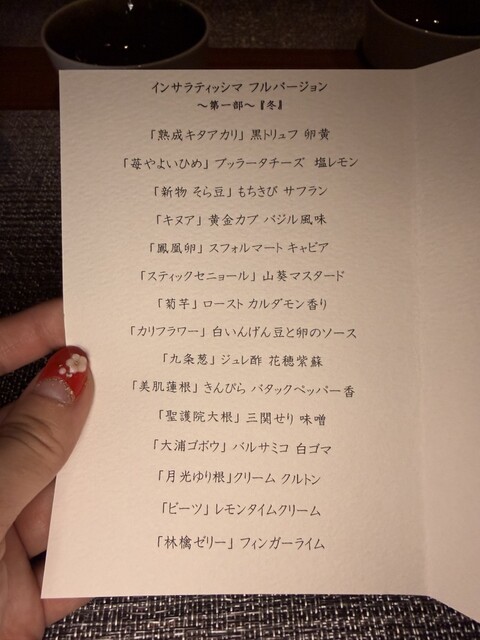 インサラティッシマ フルバージョン
～第一部～『冬』
「熟成キタアカリ」 黒トリュフ 卵黄
「苺やよいひめ」 ブッラータチーズ 塩レモン
「新物 そら豆」 もちきび サフラン
「キヌア」 黄金カブ バジル風味
「鳳凰卵」 スフォルマート キャビア
「スティックセニョール」 山葵マスタード
「菊芋」 ロースト カルダモン香り
「カリフラワー」 白いんげん豆と卵のソース
「九条葱」 ジュレ酢 花穂紫蘇
「美肌蓮根」 きんぴら バタックペッパー香
「聖護院大根」 三関せり 味噌
「大浦ゴボウ」 バルサミコ 白ゴマ
「月光ゆり根」クリーム クルトン
「ビーツ」 レモンタイムクリーム
「林檎ゼリー」 フィンガーライム